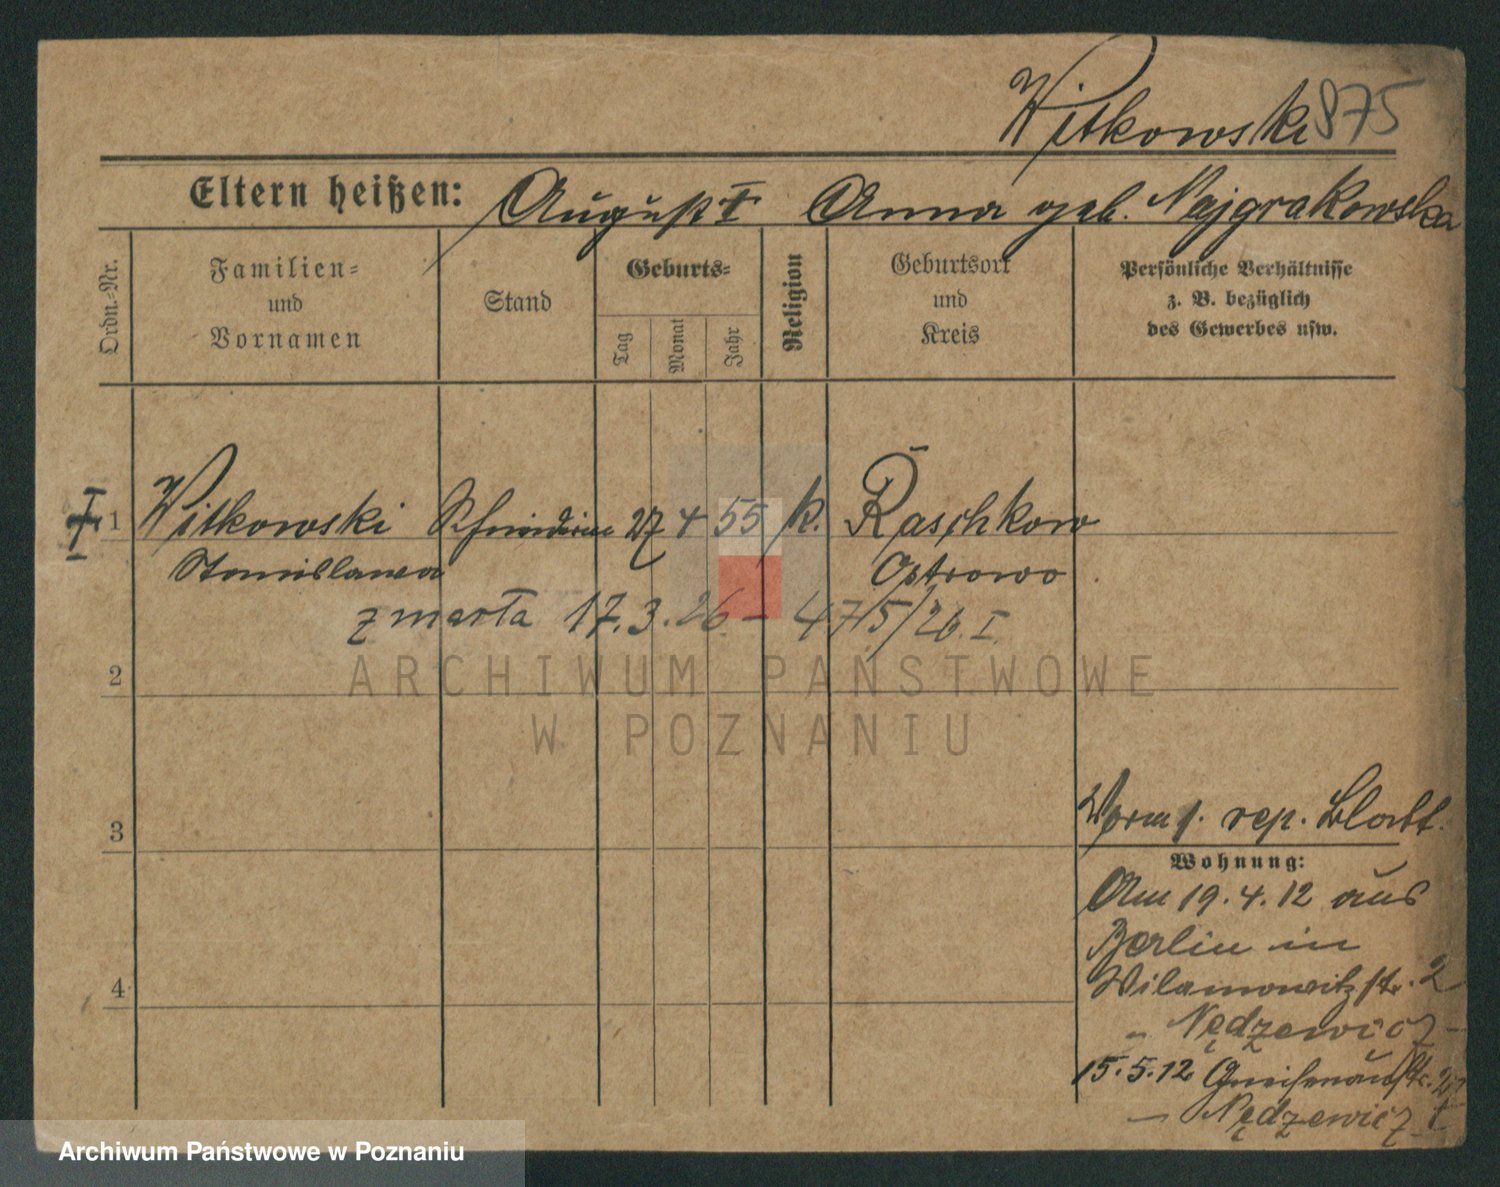 Witkowski 875
Eltern heißen: August Anna geb. Najgrakowska
Ordn.-Nr.
Familien-
und
Vornamen
Stand
Geburts-
Tag
Monat
Jahr
Religion
Geburtsort
und
Kreis
Persönliche Verhältnisse
z. B. bezüglich
des Gewerbes usw.
1 Witkowski 27 4 55 k. Raschkow
Stanislawa Ostrowo
zmarła 17.3.26 – 475/26. I
2
ARCHIWUM PAŃSTWOWE
W POZNANIU
3
rep. Blatt.
Wohnung:
Am 19.4.12 aus
Berlin in
Wilamowitzstr. 2
- Nędzewicz -
4
15.5.12 Gneisenaustr.
- Nędzewicz
Archiwum Państwowe w Poznaniu